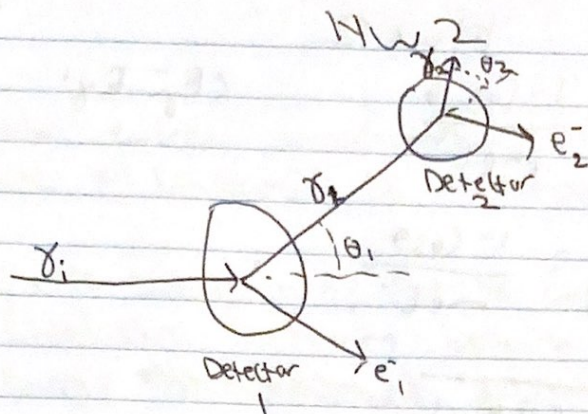 HW 2
γ₂ θ₂
e₂⁻
Detector
2
γ₁
θ₁
γᵢ
e₁⁻
Detector
1